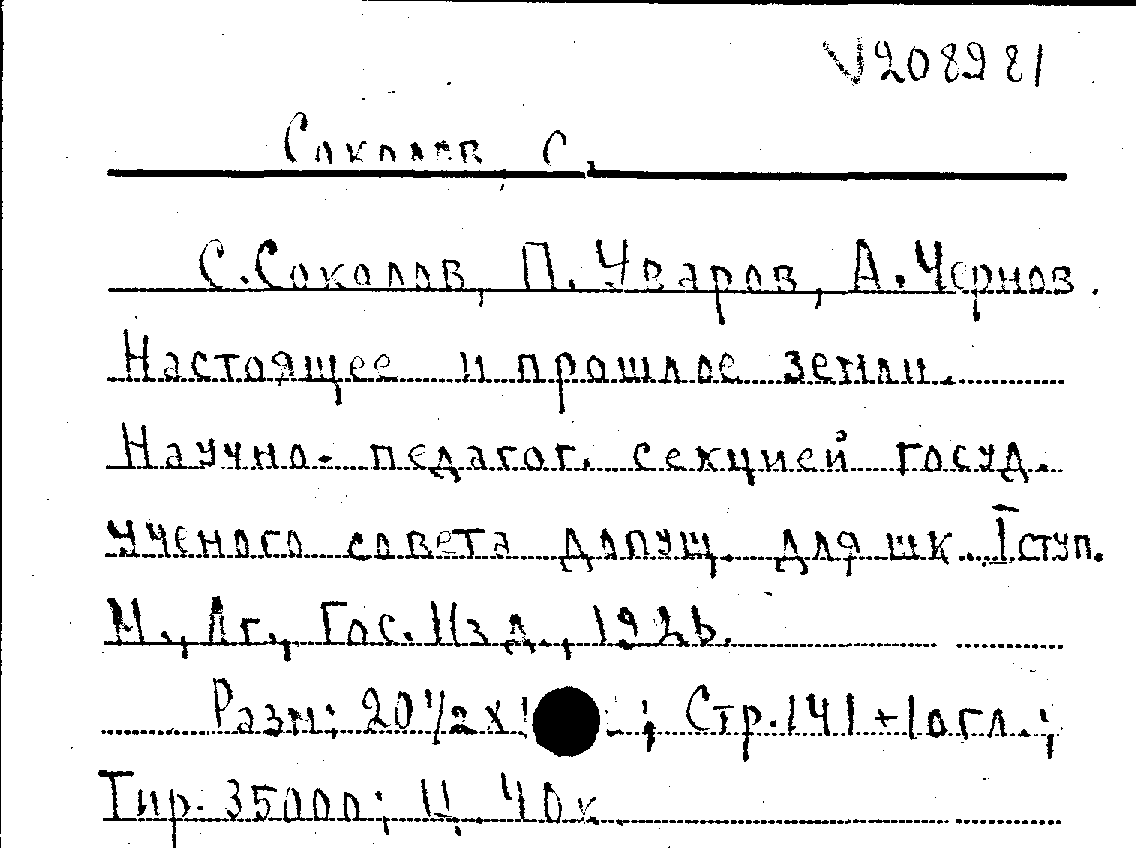 V208981
Соколов, С.
С. Соколов, П. Уваров, А. Чернов.
Настоящее и прошлое земли.
Научно-педагог. секцией госуд.
ученого совета допущ. для шк. I ступ.
М., Лг., Гос. Изд., 1926.
Разм: 20 1/2 x ; Стр. 141 + 1 огл.;
Тир. 35000; Ц. 40 к.